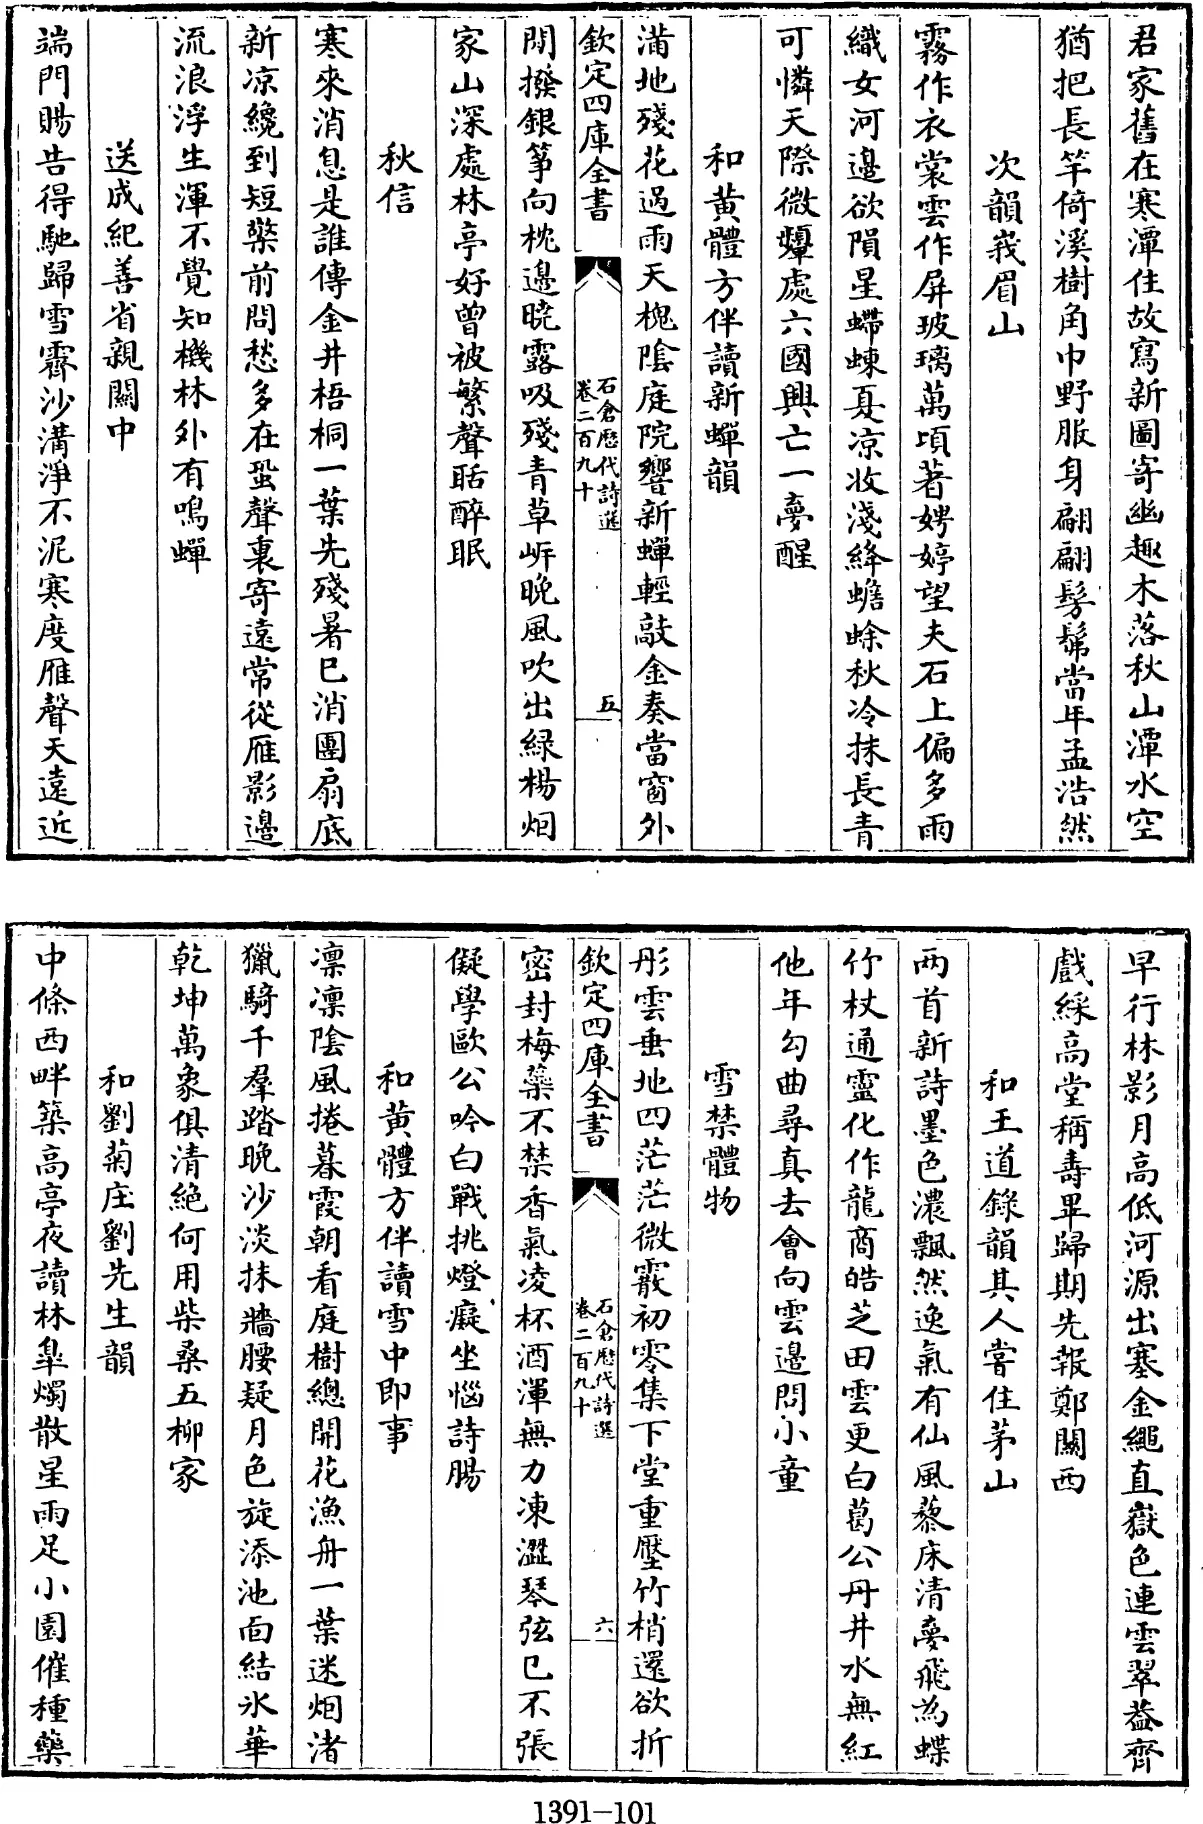 君家舊在寒潭住故寫新圖寄幽趣木落秋山潭水空
猶把長竿倚溪樹角巾野服身翩翩髣髴當年孟浩然
次韻峩眉山
霧作衣裳雲作屏玻璃萬頃著娉婷望夫石上偏多雨
織女河邊欲隕星螮蝀夏凉妝淺絳蟾蜍秋冷抹長青
可憐天際微顰處六國興亡一夢醒
和黄體方伴讀新蟬韻
滿地殘花過雨天槐陰庭院響新蟬輕敲金奏當窗外
欽定四庫全書
石倉歷代詩選
卷二百九十
五
閒撥銀箏向枕邊曉露吸殘青草岸晚風吹出緑楊烟
家山深處林亭好曾被繁聲聒醉眠
秋信
寒來消息是誰傳金井梧桐一葉先殘暑已消團扇底
新凉纔到短檠前問愁多在蛩聲裏寄遠常從雁影邊
流浪浮生渾不覺知機林外有鳴蟬
送成紀善省親關中
端門賜告得馳歸雪霽沙溝淨不泥寒度雁聲天遠近
早行林影月高低河源出塞金繩直嶽色連雲翠葢齊
戲綵高堂稱壽畢歸期先報鄭關西
和王道錄韻其人嘗住茅山
两首新詩墨色濃飄然逸氣有仙風藜床清夢飛為蝶
竹杖通靈化作龍商皓芝田雲更白葛公丹井水無紅
他年勾曲尋真去會向雲邊問小童
雪禁體物
彤雲垂地四茫茫微霰初零集下堂重壓竹梢還欲折
欽定四庫全書
石倉歷代詩選
卷二百九十
六
密封梅蘂不禁香氣凌杯酒渾無力凍澀琴弦已不張
儗學歐公吟白戰挑燈癡坐惱詩腸
和黄體方伴讀雪中即事
凛凛陰風捲暮霞朝看庭樹總開花漁舟一葉迷烟渚
獵騎千羣踏晚沙淡抹牆腰疑月色旋添池面結氷華
乾坤萬象俱清絶何用柴桑五柳家
和劉菊庄劉先生韻
中條西畔築高亭夜讀林臯燭散星雨足小園催種藥
1391-101